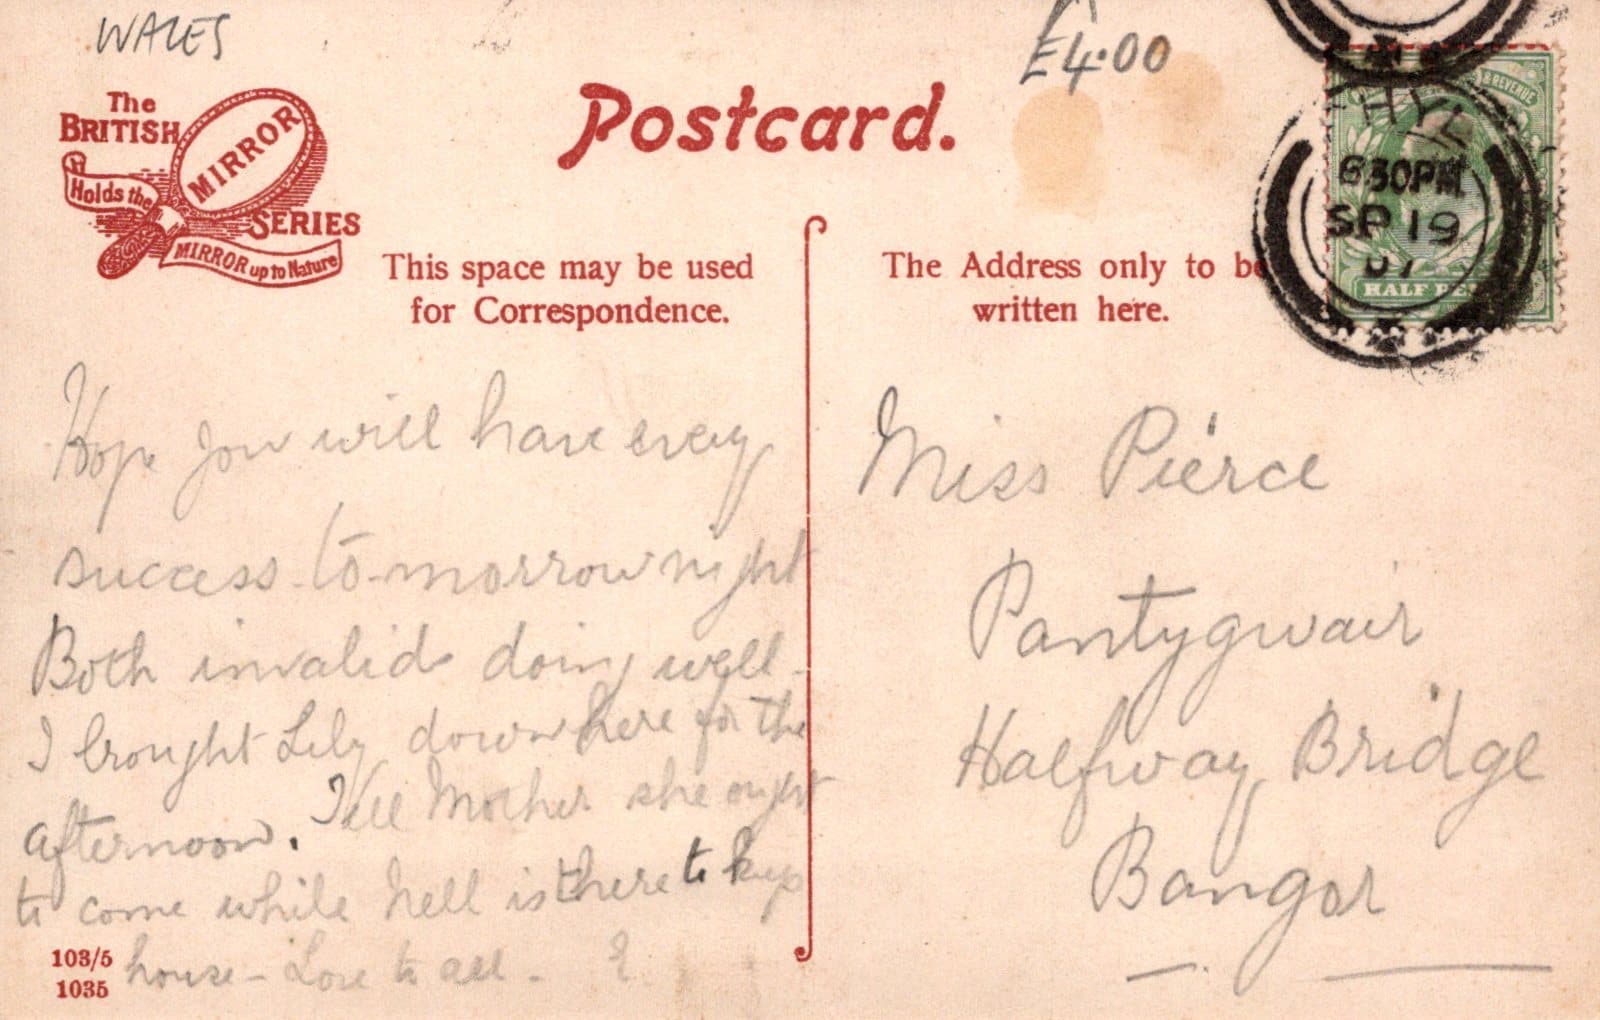 WALES
£4.00
The
BRITISH
MIRROR
Holds the
SERIES
MIRROR up to Nature
Postcard.
& REVENUE
RHYL
630PM
SP 19
07
HALF PE
This space may be used
for Correspondence.
The Address only to be
written here.
Hope you will have every
success to-morrow night
Both invalids doing well-
I brought Lily down here for the
afternoon. Tell Mother she ought
to come while Nell is there to keep
house - Love to all - E
Miss Pierce
Pantygwair
Halfway Bridge
Bangor
103/5
1035